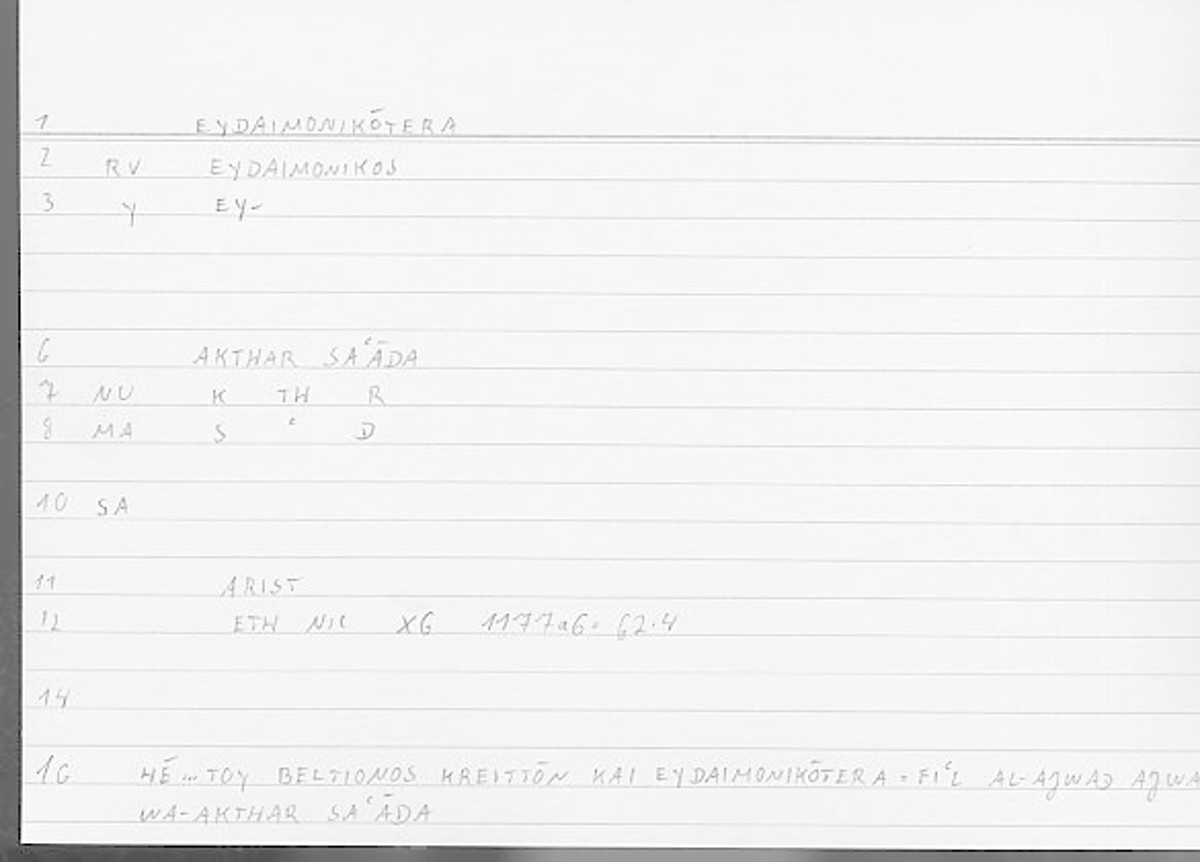 1 EYDAIMONIKŌTERA
2 RV EYDAIMONIKOS
3 Y EY-
6 AKTHAR SAʿĀDA
7 NU K TH R
8 MA S ʿ D
10 SA
11 ARIST
12 ETH NIC X6 1177a6 =
14
16 HĒ...TOY BELTIONOS KREITTŌN KAI EYDAIMONIKŌTERA = FIʿL AL-AJWAD AJWA
WA-AKTHAR SAʿĀDA